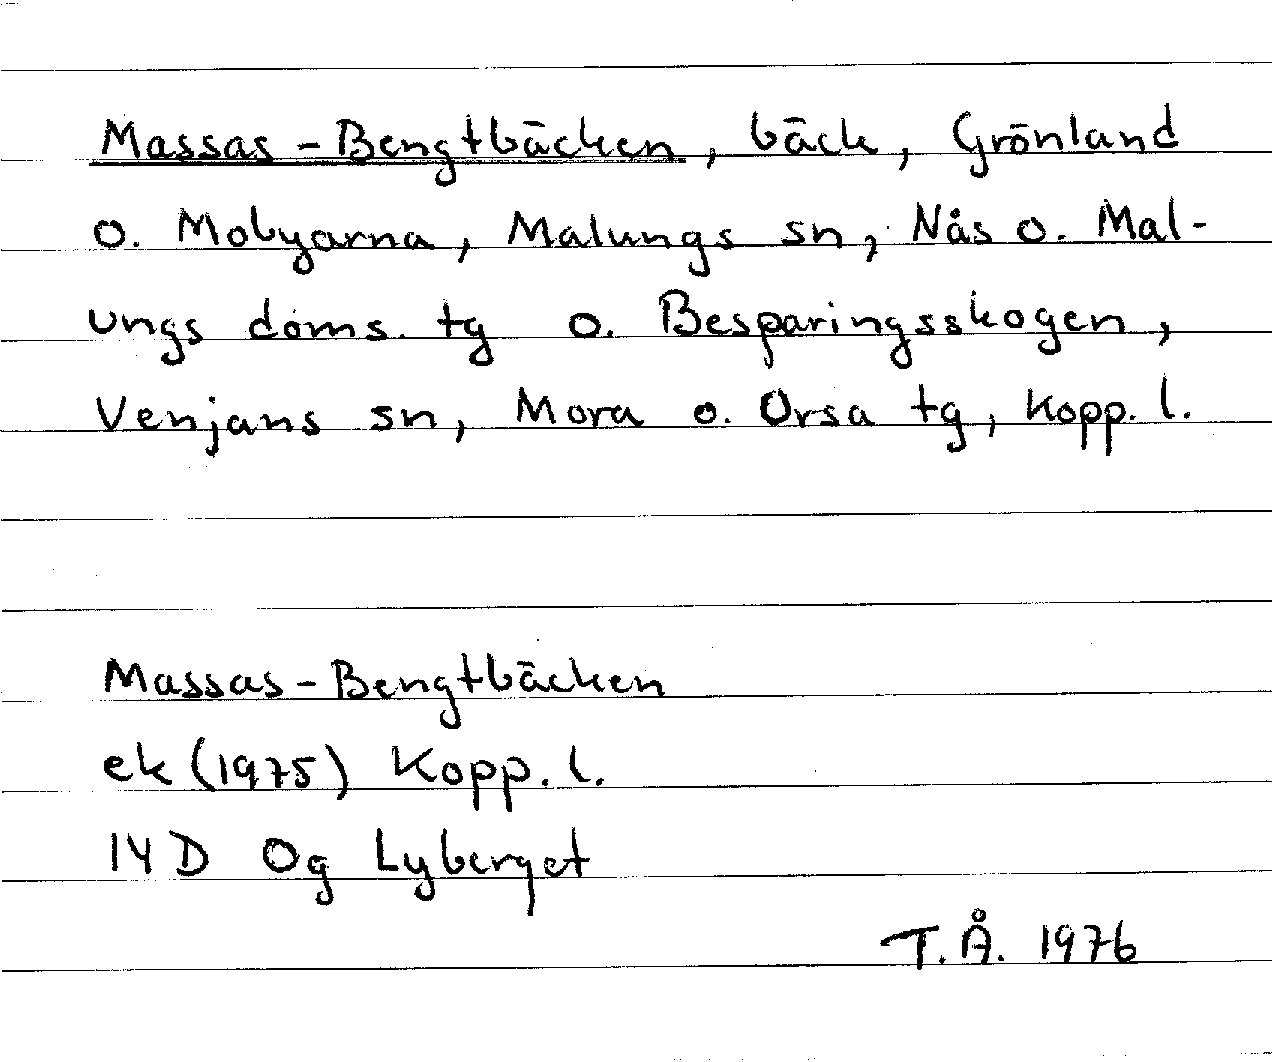 Massas-Bengtbäcken, bäck, Grönland
o. Mobyarna, Malungs sn, Nås o. Mal-
ungs doms. tg o. Besparingsskogen,
Venjans sn, Mora o. Orsa tg, Kopp. l.
Massas-Bengtbäcken
ek (1975) Kopp. l.
14 D 0g Lyberget
T.Å. 1976